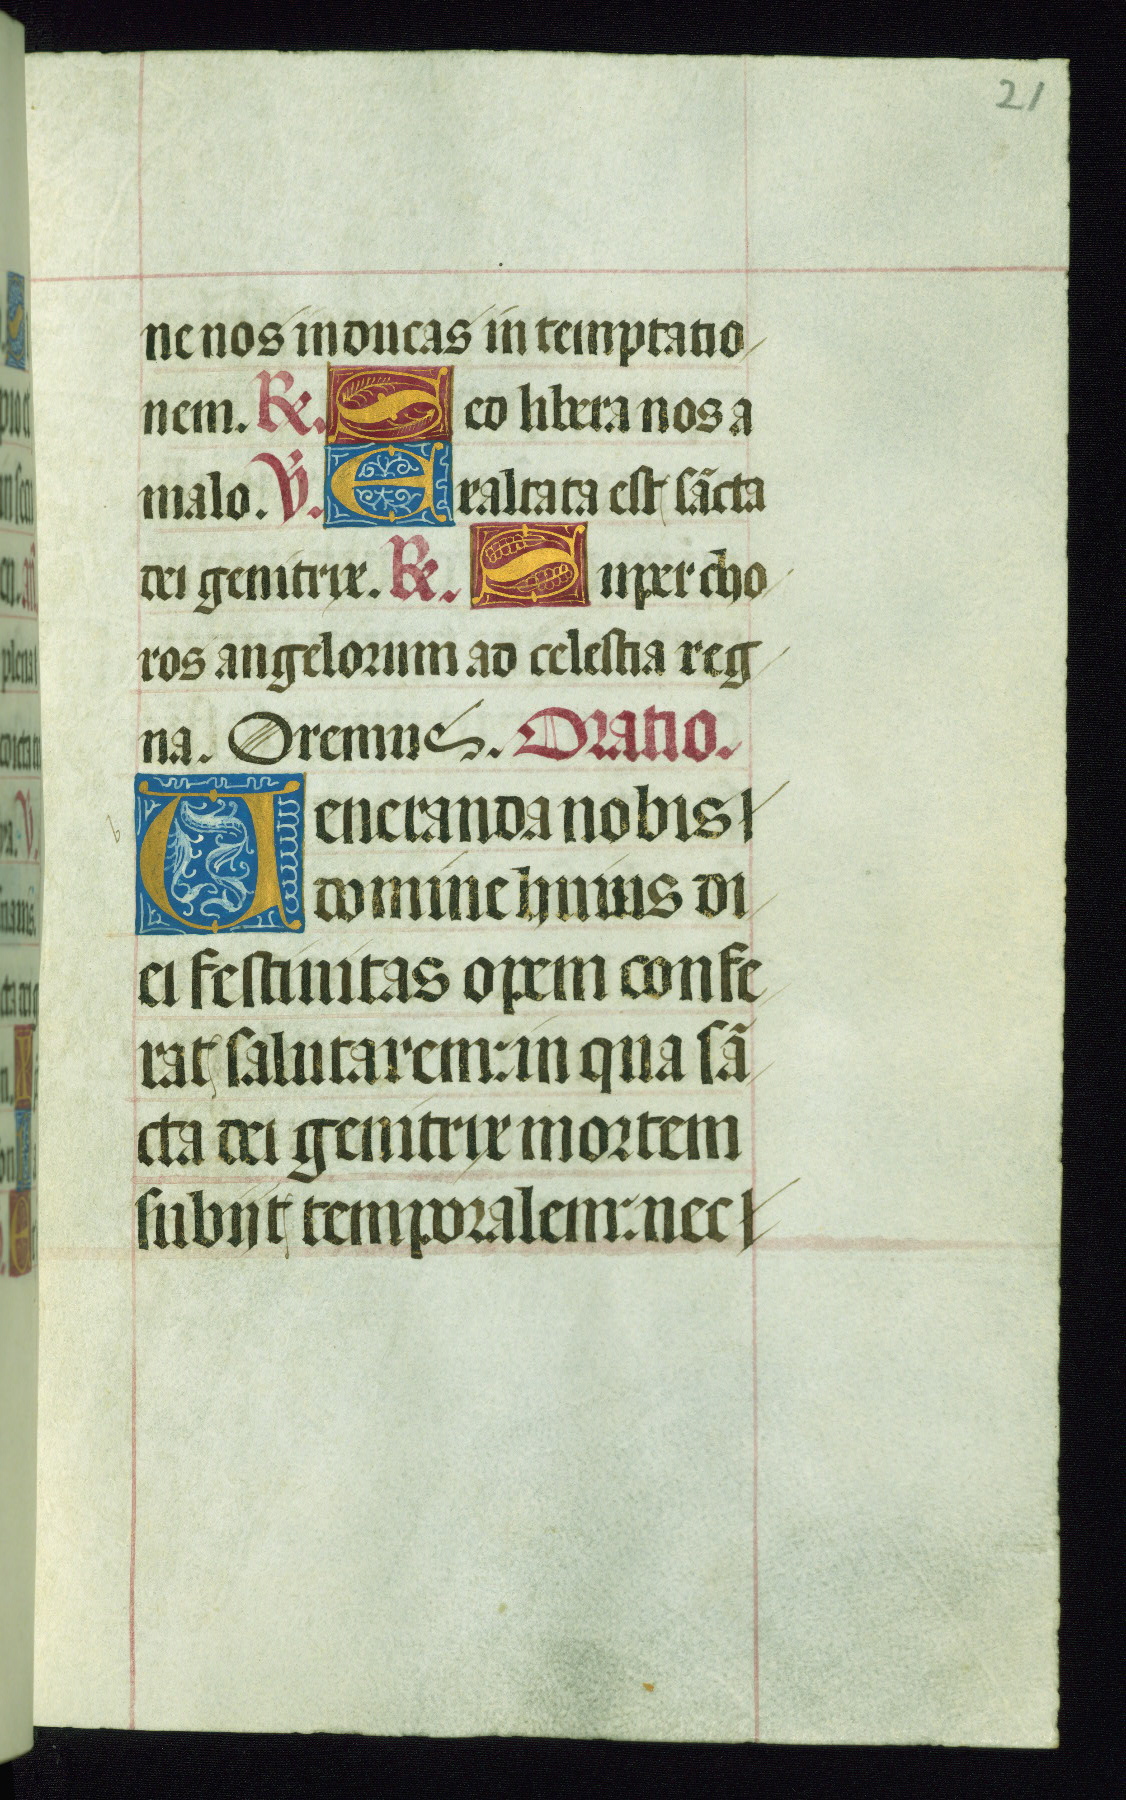 21
ne nos inducas in temptatio
nem. R. Sed libera nos a
malo. V. Exaltata est sãcta
dei genitrix. R. Super cho
ros angelorum ad celestia reg
na. Oremus. Oratio.
Ueneranda nobis
domine huius di
ei festiuitas opem confe
rat salutarem: in qua sã
cta dei genitrix mortem
subijt temporalem: nec